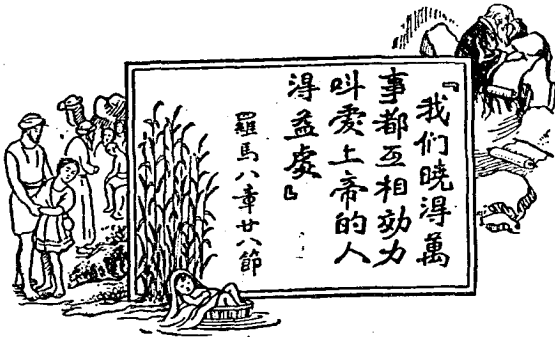 『我们曉得萬
事都互相効力
叫愛上帝的人
得益處』
羅馬八章廿八節